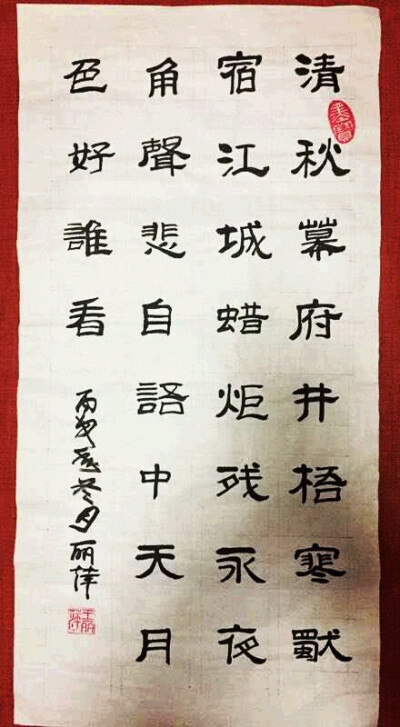 清秋幕府井梧寒獨
宿江城蜡炬残永夜
角聲悲自語中天月
色好誰看
丙戌 冬月 丽伟